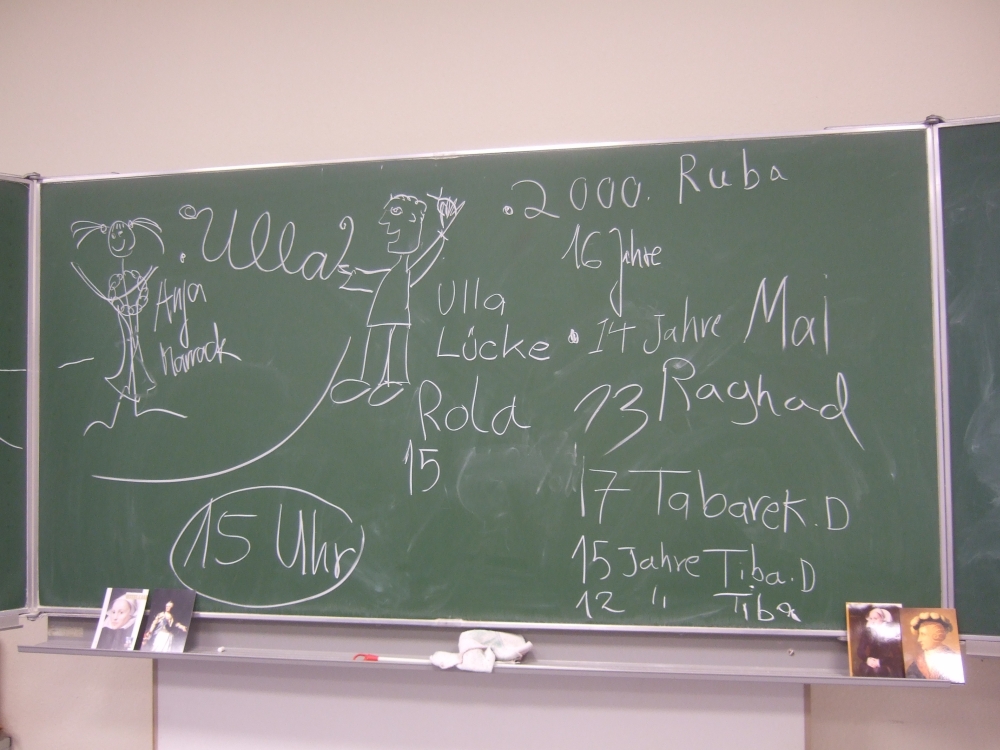 Ulla
Anja
Marrock
Ulla
Lücke
Rola
15
15 Uhr
2000. Ruba
16 Jahre
14 Jahre Mai
13 Raghad
17 Tabarek.D
15 Jahre Tiba.D
12 " Tiba